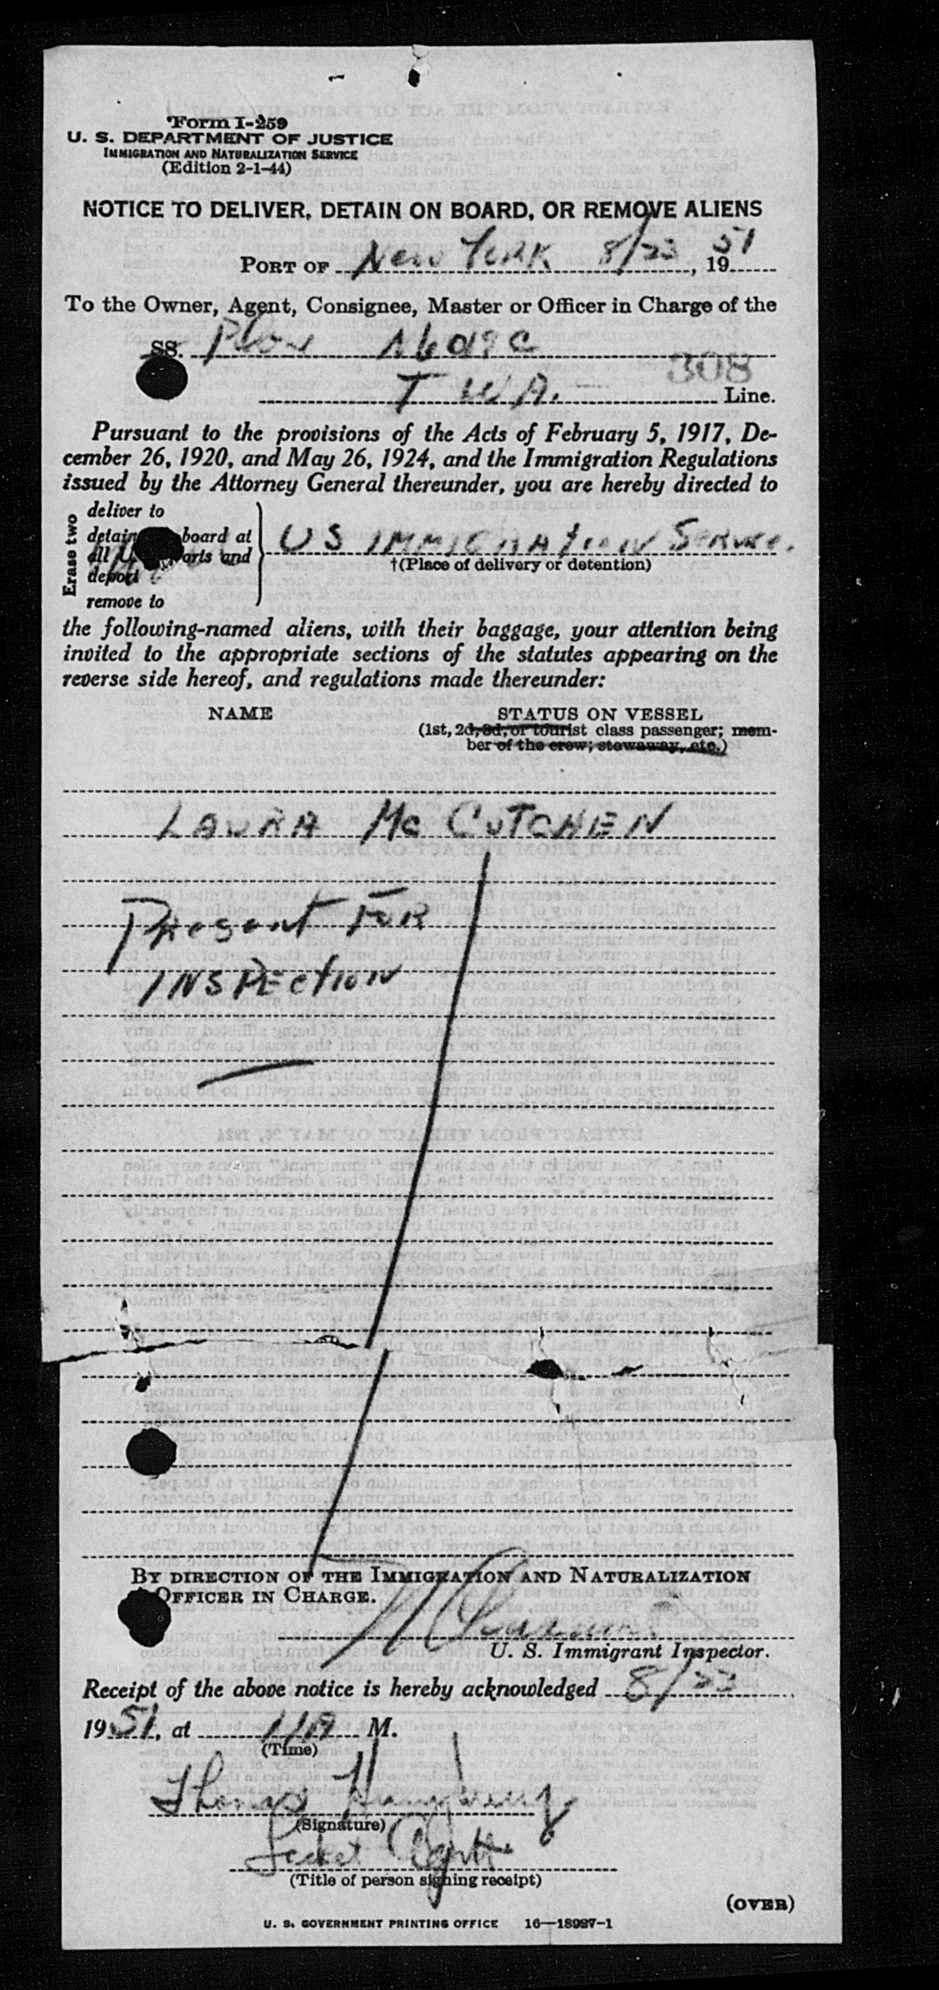 Form I-259
U. S. DEPARTMENT OF JUSTICE
IMMIGRATION AND NATURALIZATION SERVICE
(Edition 2-1-44)
NOTICE TO DELIVER, DETAIN ON BOARD, OR REMOVE ALIENS
PORT OF New York 8/23, 1951
To the Owner, Agent, Consignee, Master or Officer in Charge of the
SS.
308
T WA. Line.
Pursuant to the provisions of the Acts of February 5, 1917, De-
cember 26, 1920, and May 26, 1924, and the Immigration Regulations
issued by the Attorney General thereunder, you are hereby directed to
Erase two
deliver to
detain board at
all and
deport
remove to
US IMMIGRATION Service.
†(Place of delivery or detention)
the following-named aliens, with their baggage, your attention being
invited to the appropriate sections of the statutes appearing on the
reverse side hereof, and regulations made thereunder:
NAME STATUS ON VESSEL
(1st, 2d, 3d, or tourist class passenger; mem-
ber of the crew; stowaway, etc.)
LAURA Mc CUTCHEN
Present FOR
INSPECTION
BY DIRECTION OF THE IMMIGRATION AND NATURALIZATION
OFFICER IN CHARGE.
U. S. Immigrant Inspector.
Receipt of the above notice is hereby acknowledged 8/23
1951, at 11A M.
(Time)
Thomas
(Signature)
(Title of person signing receipt)
(OVER)
U. S. GOVERNMENT PRINTING OFFICE 16—18987-1